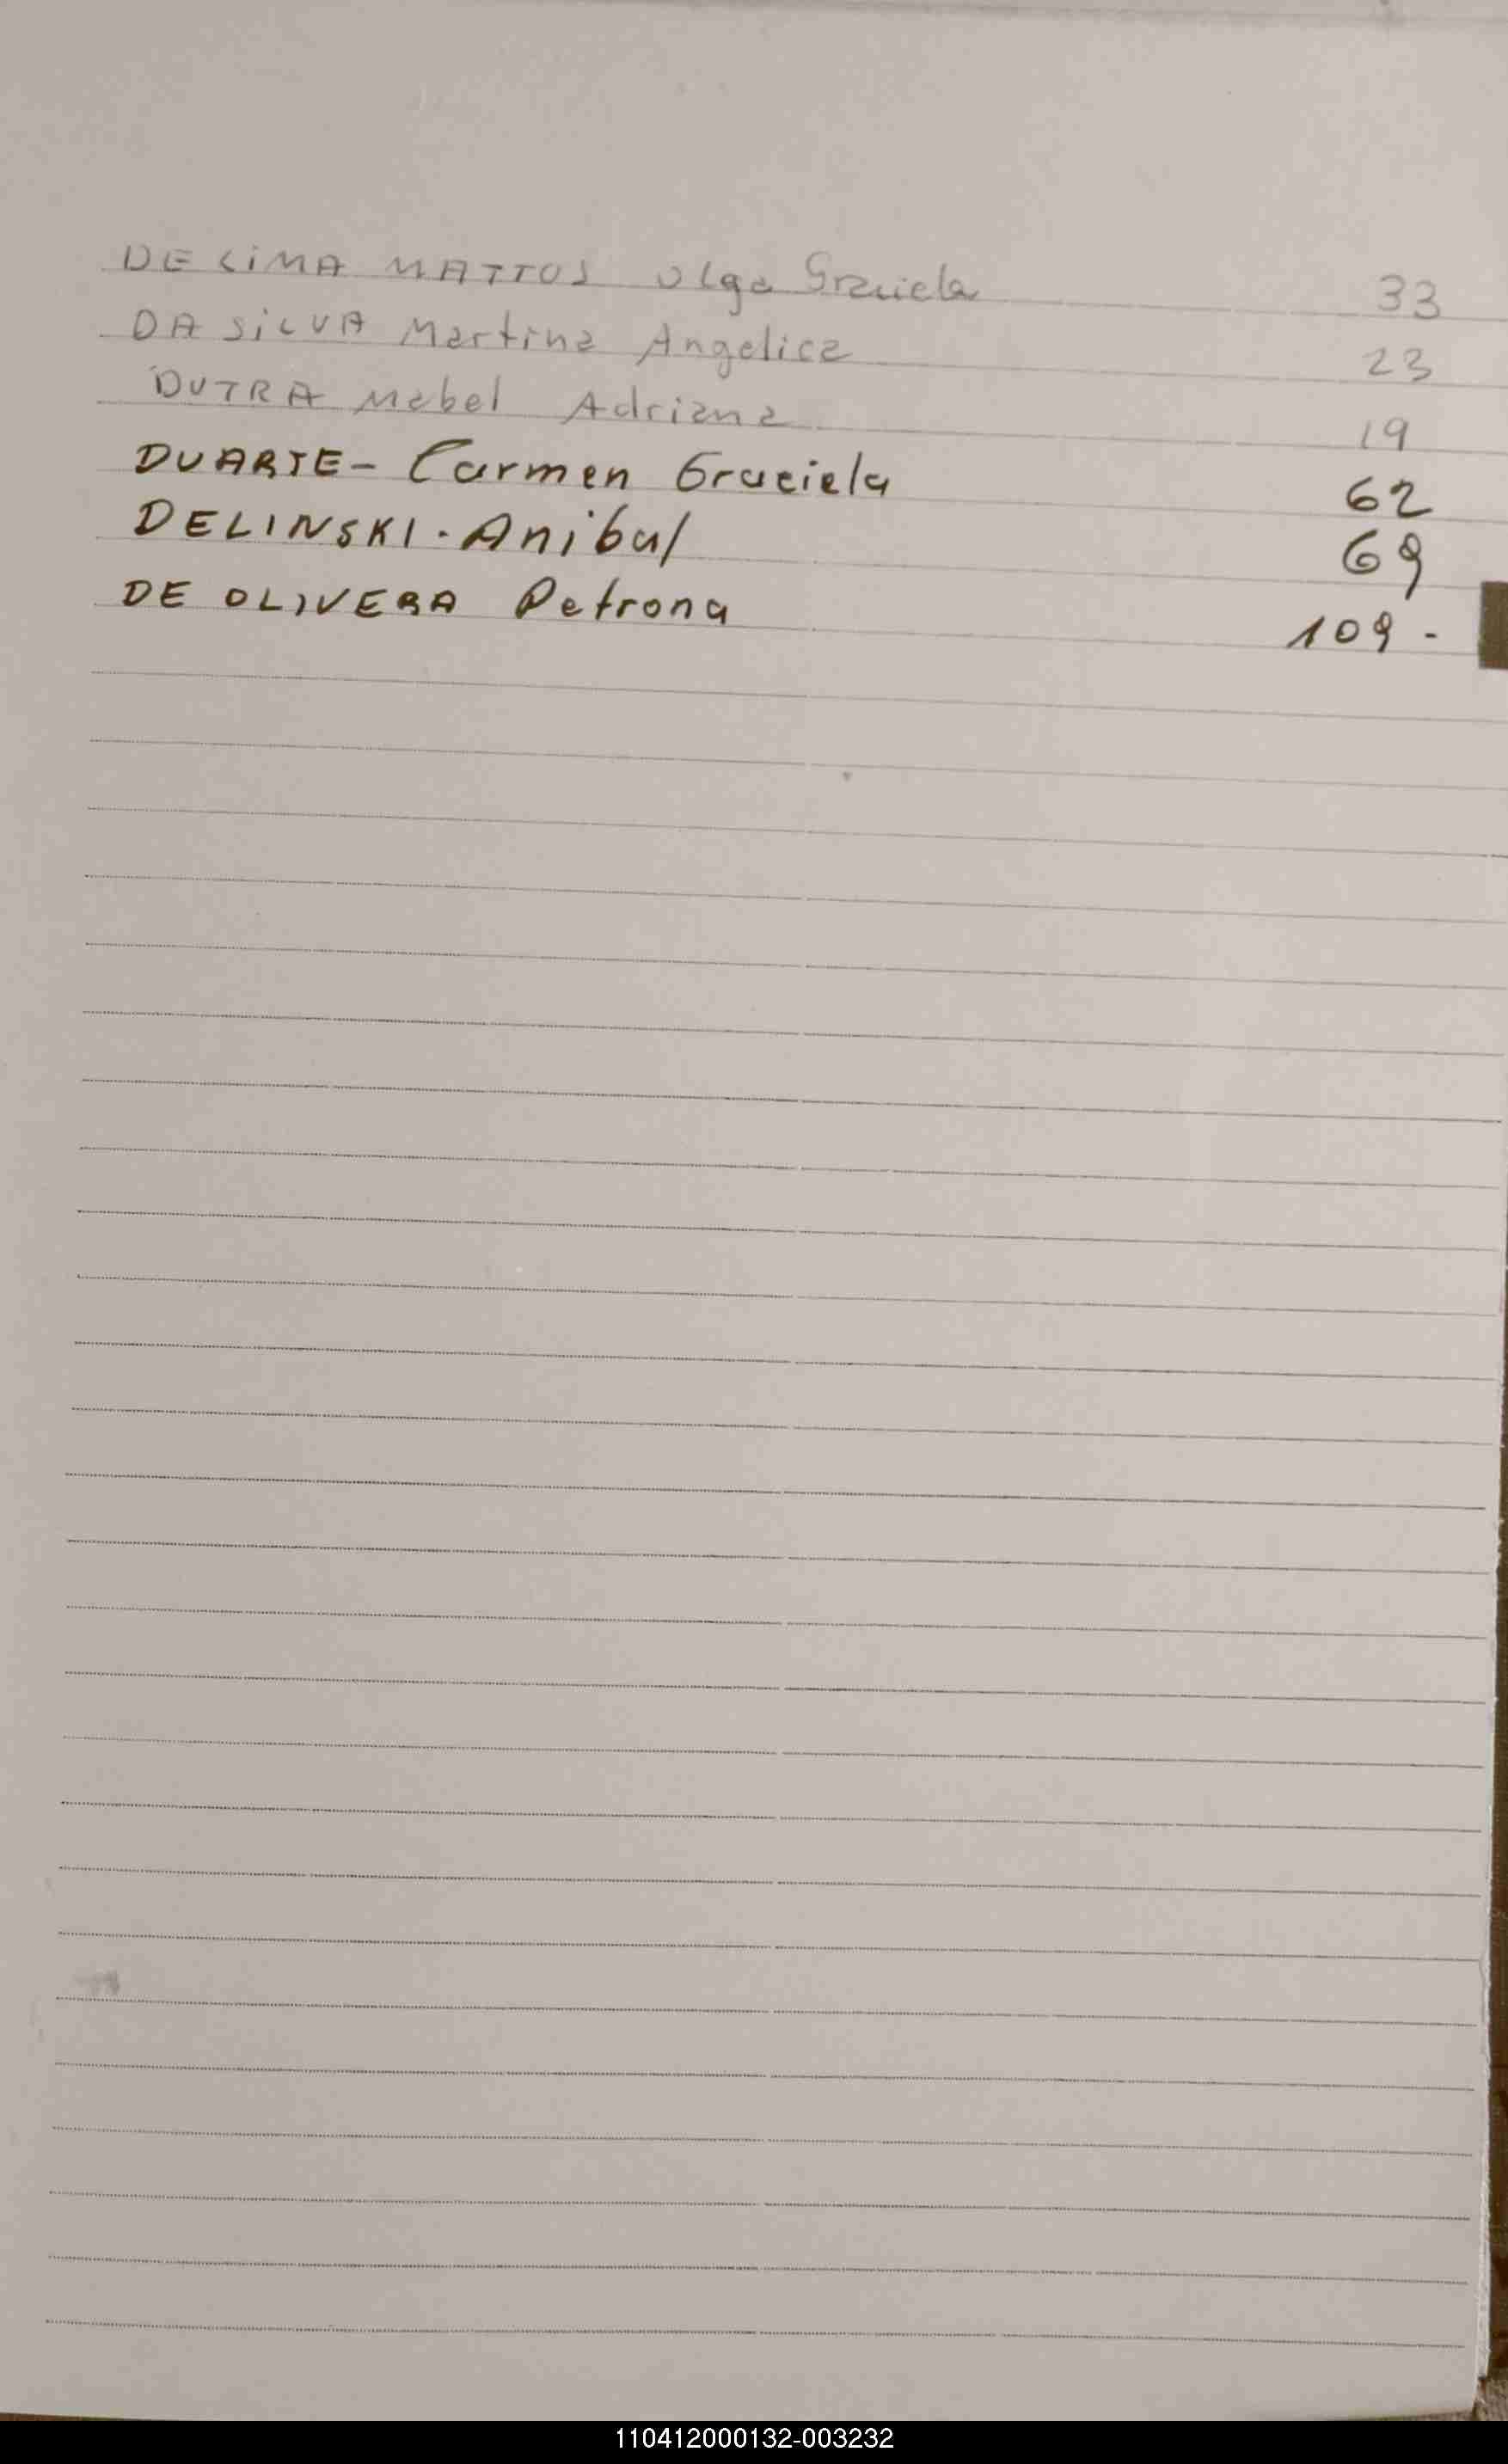 DE LIMA MATTOS Olga Graciela 33
DA SILVA Martina Angelica 23
DUTRA Mabel Adriana 19
DUARTE - Carmen Graciela 62
DELINSKI - Anibal 69
DE OLIVERA Petrona 109 -
110412000132-003232